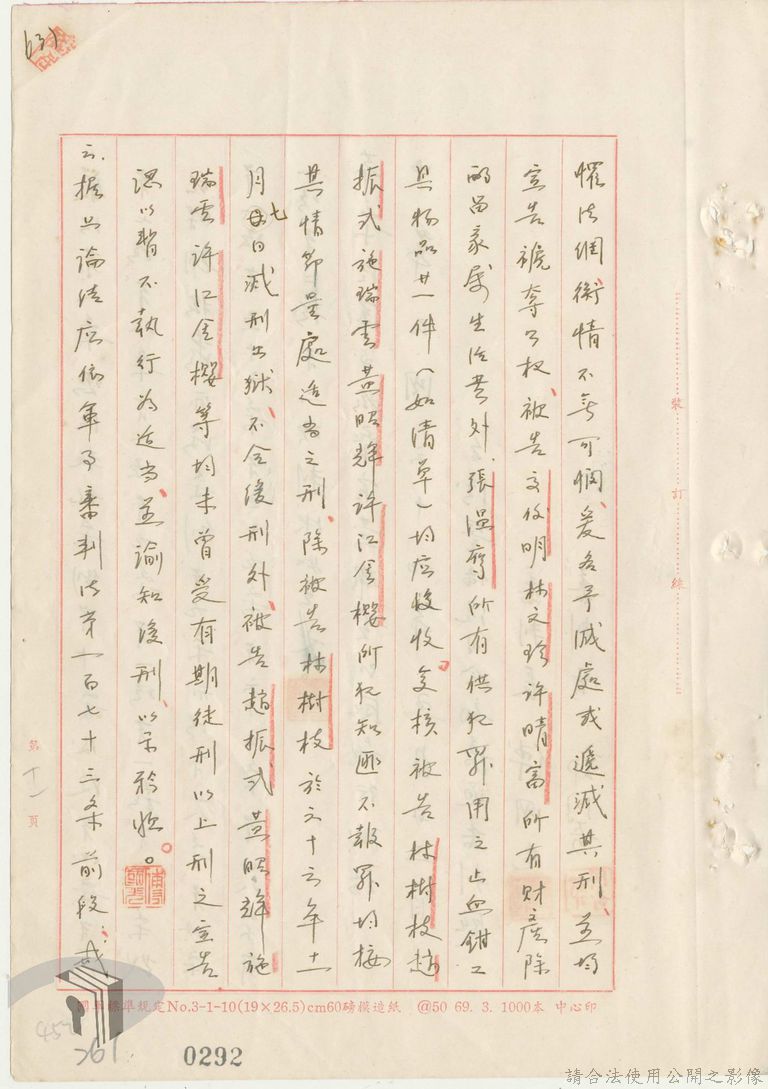 (31)
罹法網、衡情不無可憫、爰各予減處或遞減其刑、並均
宣告褫奪公權、被告 俊明林文珍許晴富所有財產除
酌留家屬生活費外、張溫鷹所有供犯罪用之止血鉗工
具物品廿一件(如清單)均應沒收。復核被告林樹枝趙
振弍施瑞雲黃昭輝許江金櫻所犯知匪不報罪均按
其情節量處適當之刑、除被告林樹枝於六十六年十一
月七日減刑出獄、不合緩刑外、被告趙振弍黃昭輝施
瑞雲許江金櫻等均未曾受有期徒刑以上刑之宣告
認以暫不執行為適當、並諭知緩刑、以示矜恤。
云、據上論結應依軍事審判法第一百七十三條前段、戡
裝訂線
第十一頁
國軍標準規定No.3-1-10(19×26.5)cm60磅模造紙 @50 69. 3. 1000本 中心印
261
0292
請合法使用公開之影像